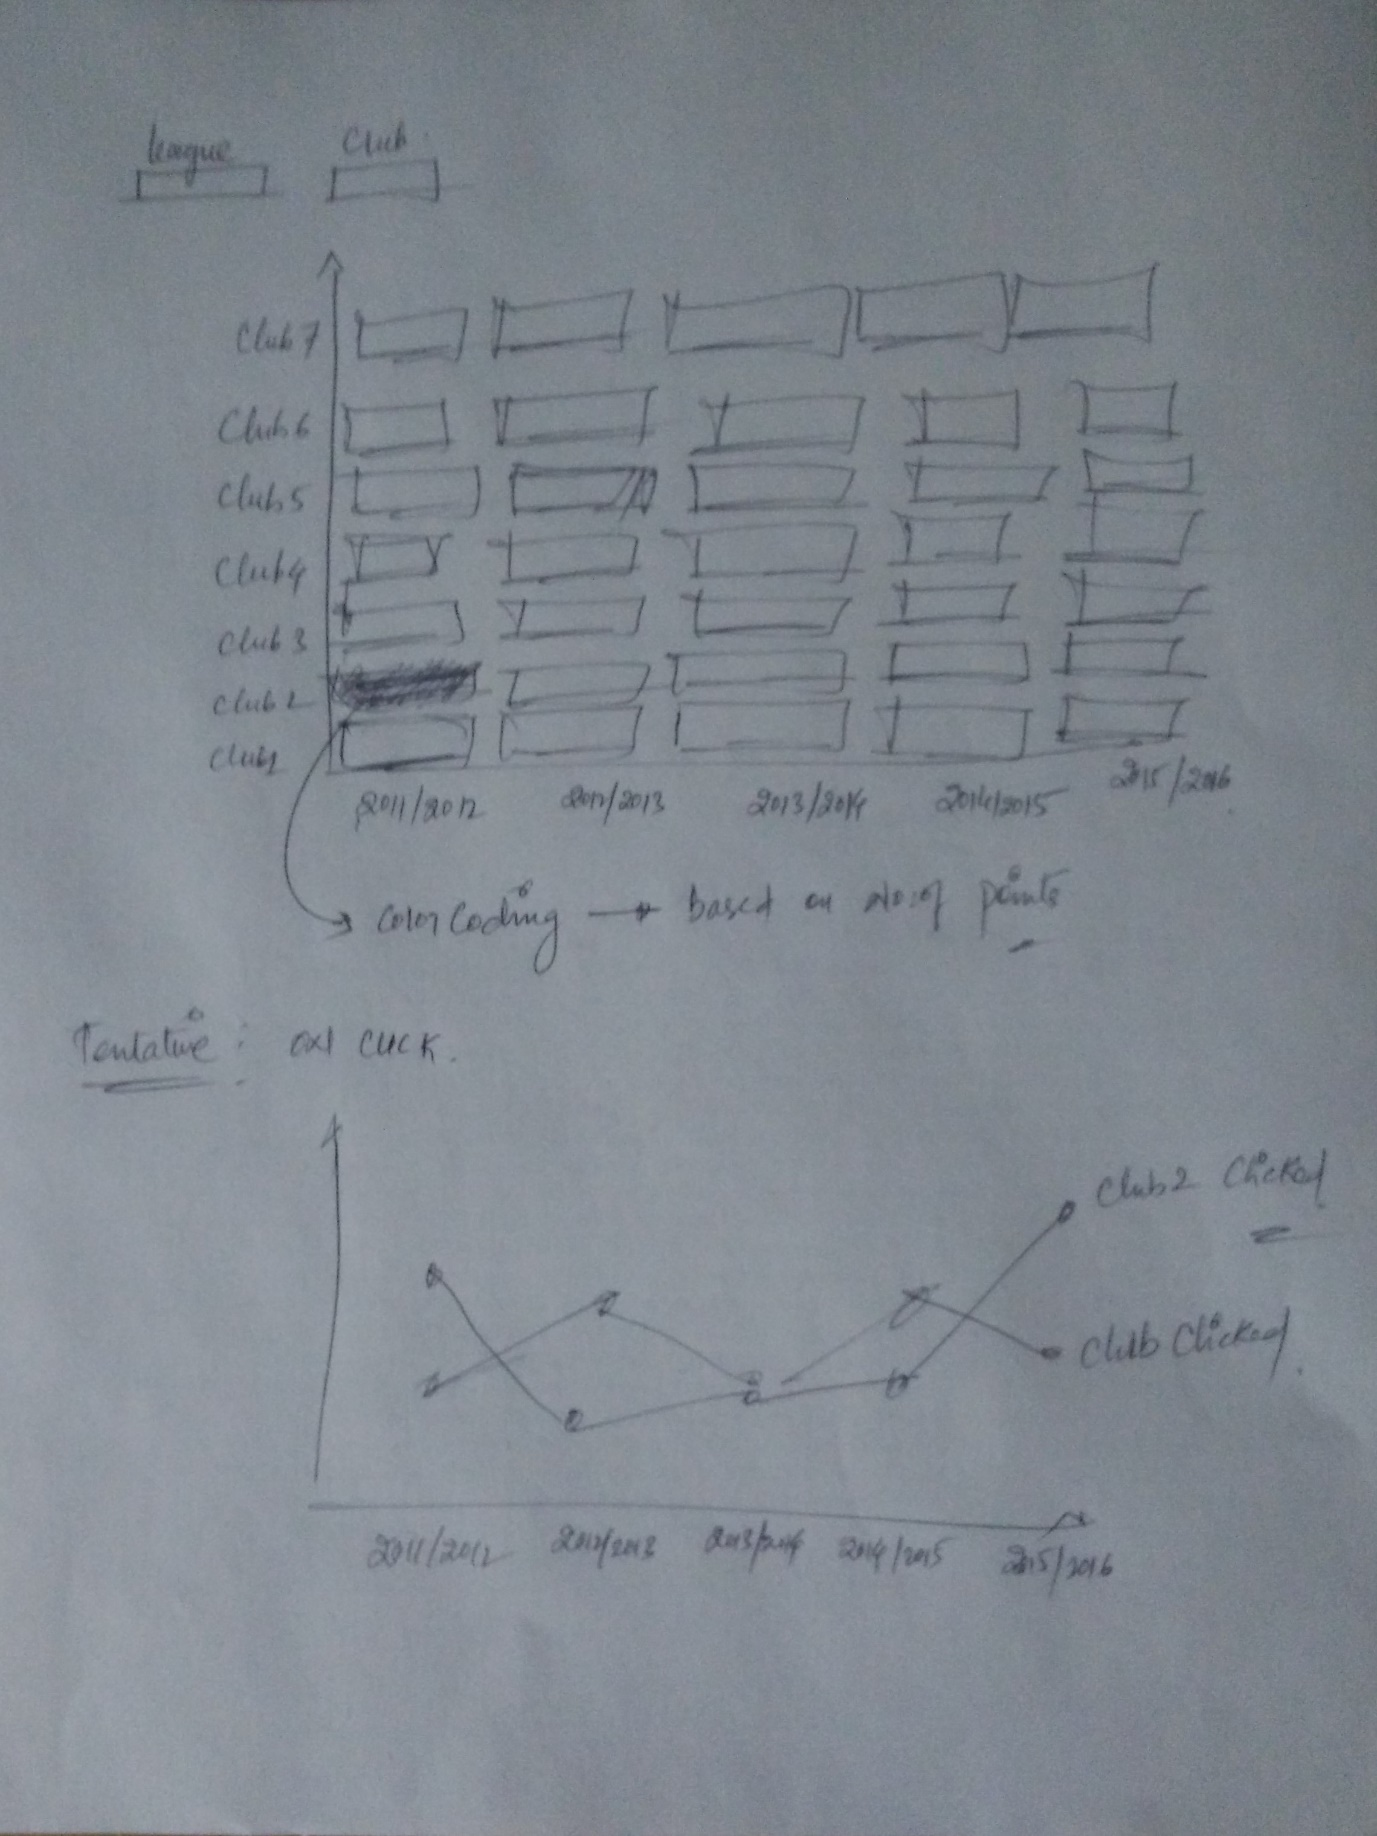 league Club
Club 7
Club 6
Club 5
Club 4
Club 3
Club 2
Club1
2011/2012 2012/2013 2013/2014 2014/2015 2015/2016
Color Coding → Based on No: of points
Tentative: ON CLICK.
Club2 Clicked
Club Clicked
2011/2012 2012/2013 2013/2014 2014/2015 2015/2016